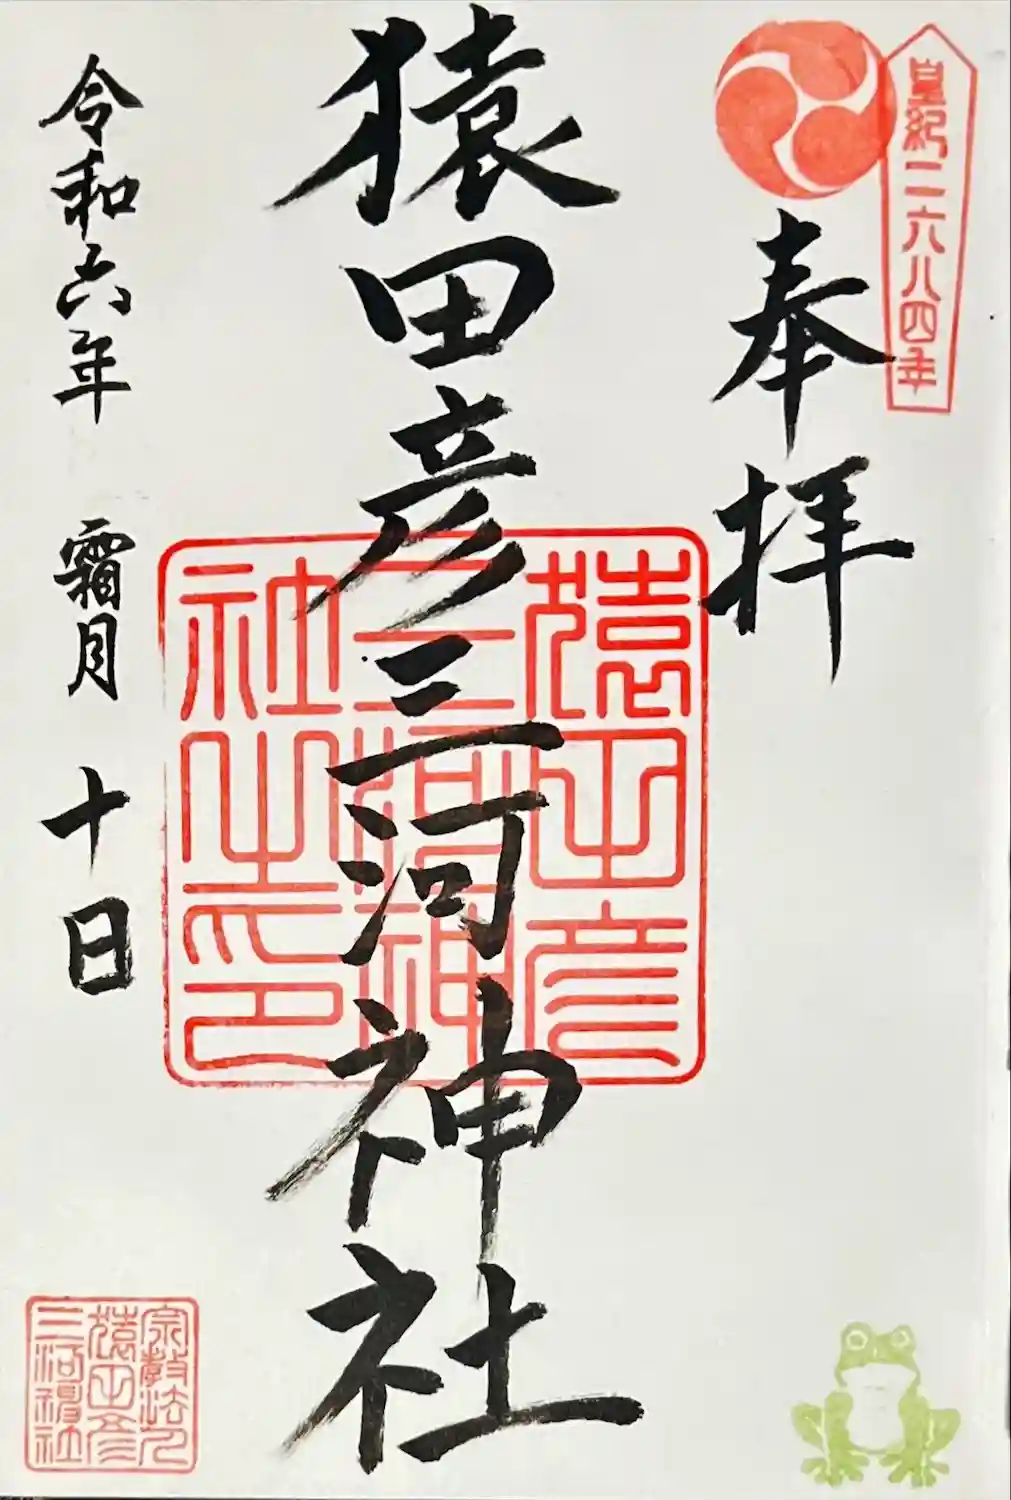 皇紀二六八四年
奉拝
猿田彦三河神社
猿田彦
三河神
社之印
令和六年 霜月 十日
宗教法人
猿田彦
三河神社